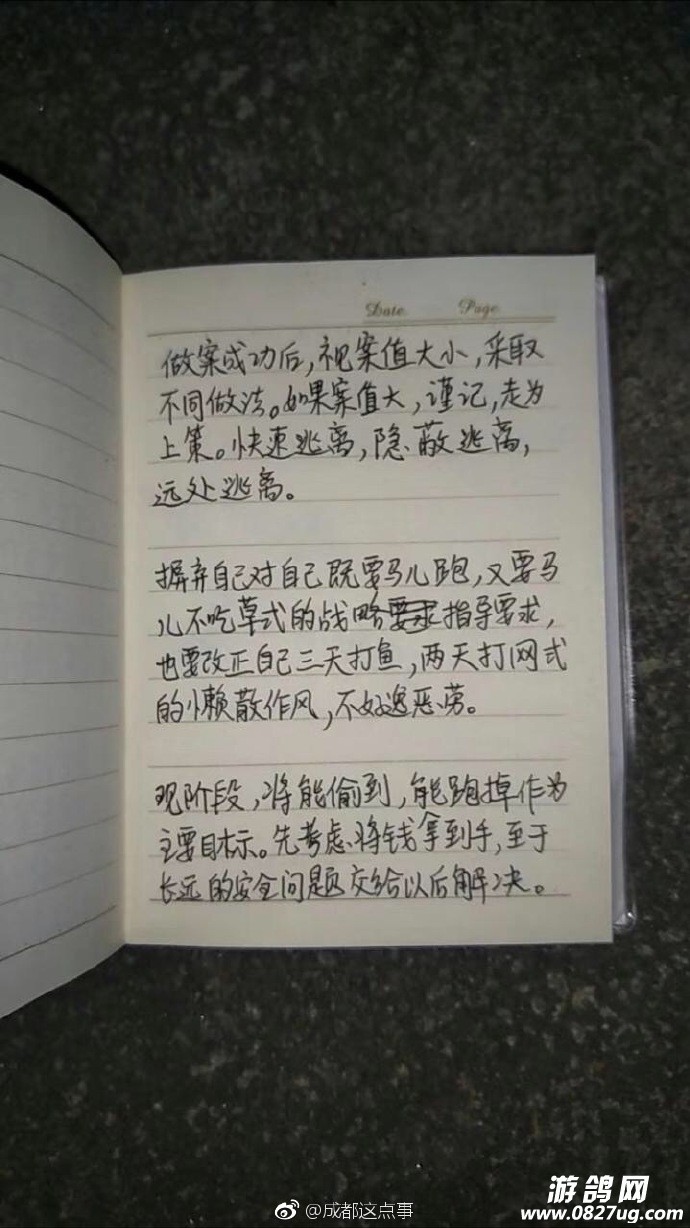 Date Page
做案成功后,视案值大小,采取
不同做法。如果案值大,谨记,走为
上策。快速逃离,隐蔽逃离,
远处逃离。
摒弃自己对自己既要马儿跑,又要马
儿不吃草式的战略要求指导要求,
也要改正自己三天打鱼,两天打网式
的懒散作风,不好逸恶劳。
现阶段,将能偷到,能跑掉作为
主要目标。先考虑将钱拿到手,至于
长远的安全问题交给以后解决。
@成都这点事
游鸽网
www.0827ug.com